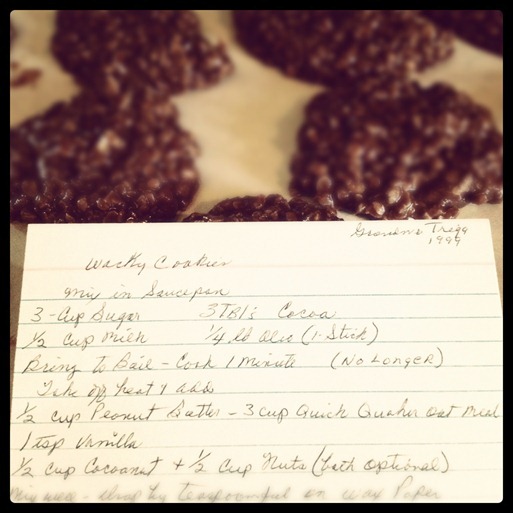 Grandma Tregg
1999
Wacky Cookies
Mix in Saucepan
3 - Cup Sugar 3 TBls Cocoa
1/2 cup Milk 1/4 lb Oleo (1-Stick)
Bring to Boil - Cook 1 Minute (No Longer)
Take off heat & add
1/2 cup Peanut Butter - 3 cup Quick Quaker Oat Meal
1 tsp Vanilla
1/2 cup Cocoanut + 1/2 Cup Nuts (both optional)
Mix well - drop by teaspoonful on wax Paper